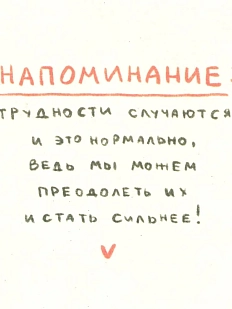 НАПОМИНАНИЕ:
ТРУДНОСТИ СЛУЧАЮТСЯ
И ЭТО НОРМАЛЬНО,
ВЕДЬ МЫ МОЖЕМ
ПРЕОДОЛЕТЬ ИХ
И СТАТЬ СИЛЬНЕЕ!